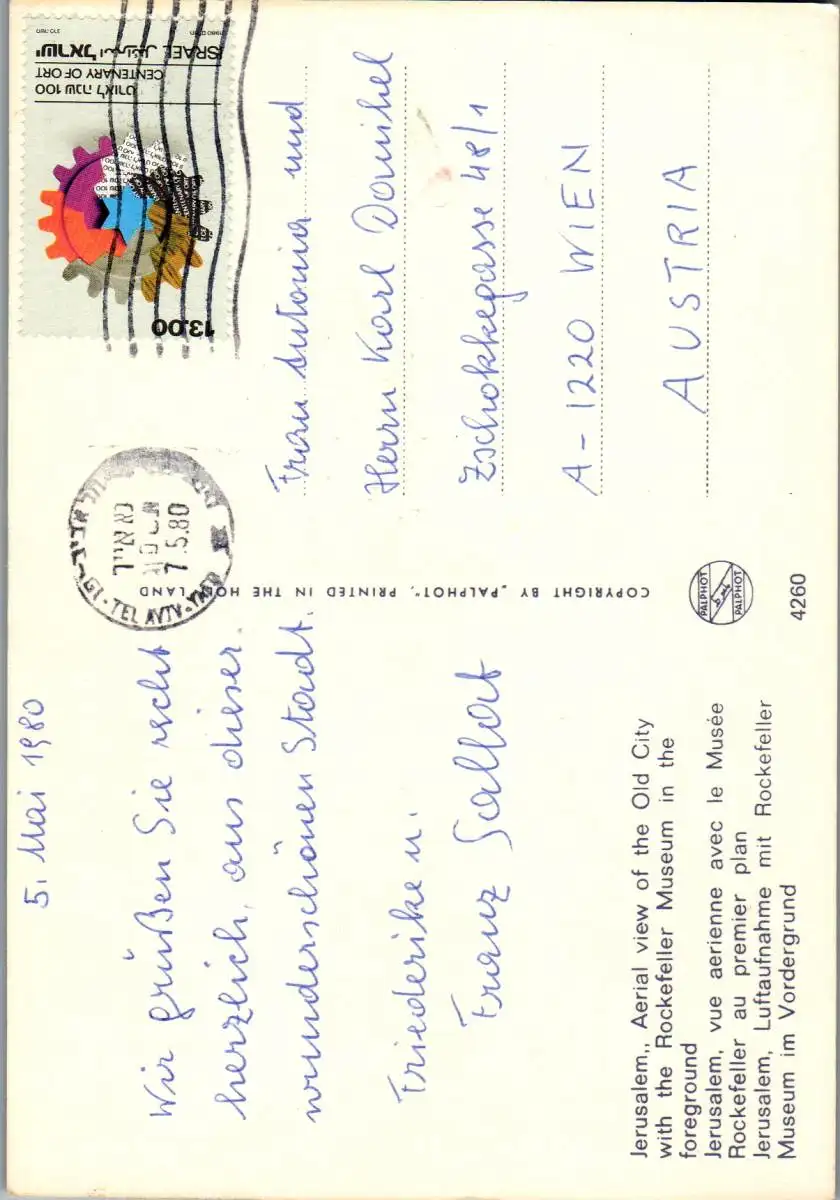 5. Mai 1980
Wir grüßen Sie recht
herzlich, aus dieser
wunderschönen Stadt.
Friederike u.
Franz
Jerusalem,, Aerial view of the Old City
with the Rockefeller Museum in the
foreground
Jerusalem, vue aerienne avec le Musée
Rockefeller au premier plan
Jerusalem, Luftaufnahme mit Rockefeller
Museum im Vordergrund
COPYRIGHT BY „PALPHOT", PRINTED IN THE HOLY LAND
PALPHOT
PALPHOT
4260
TEL AVIV-YAFO
7.5.80
13.00
100 שנה לאורט
CENTENARY OF ORT
ישראל اسرائيل ISRAEL
Frau Antonia und
Herrn Karl
Zschokkegasse 48/1
A-1220 WIEN
AUSTRIA